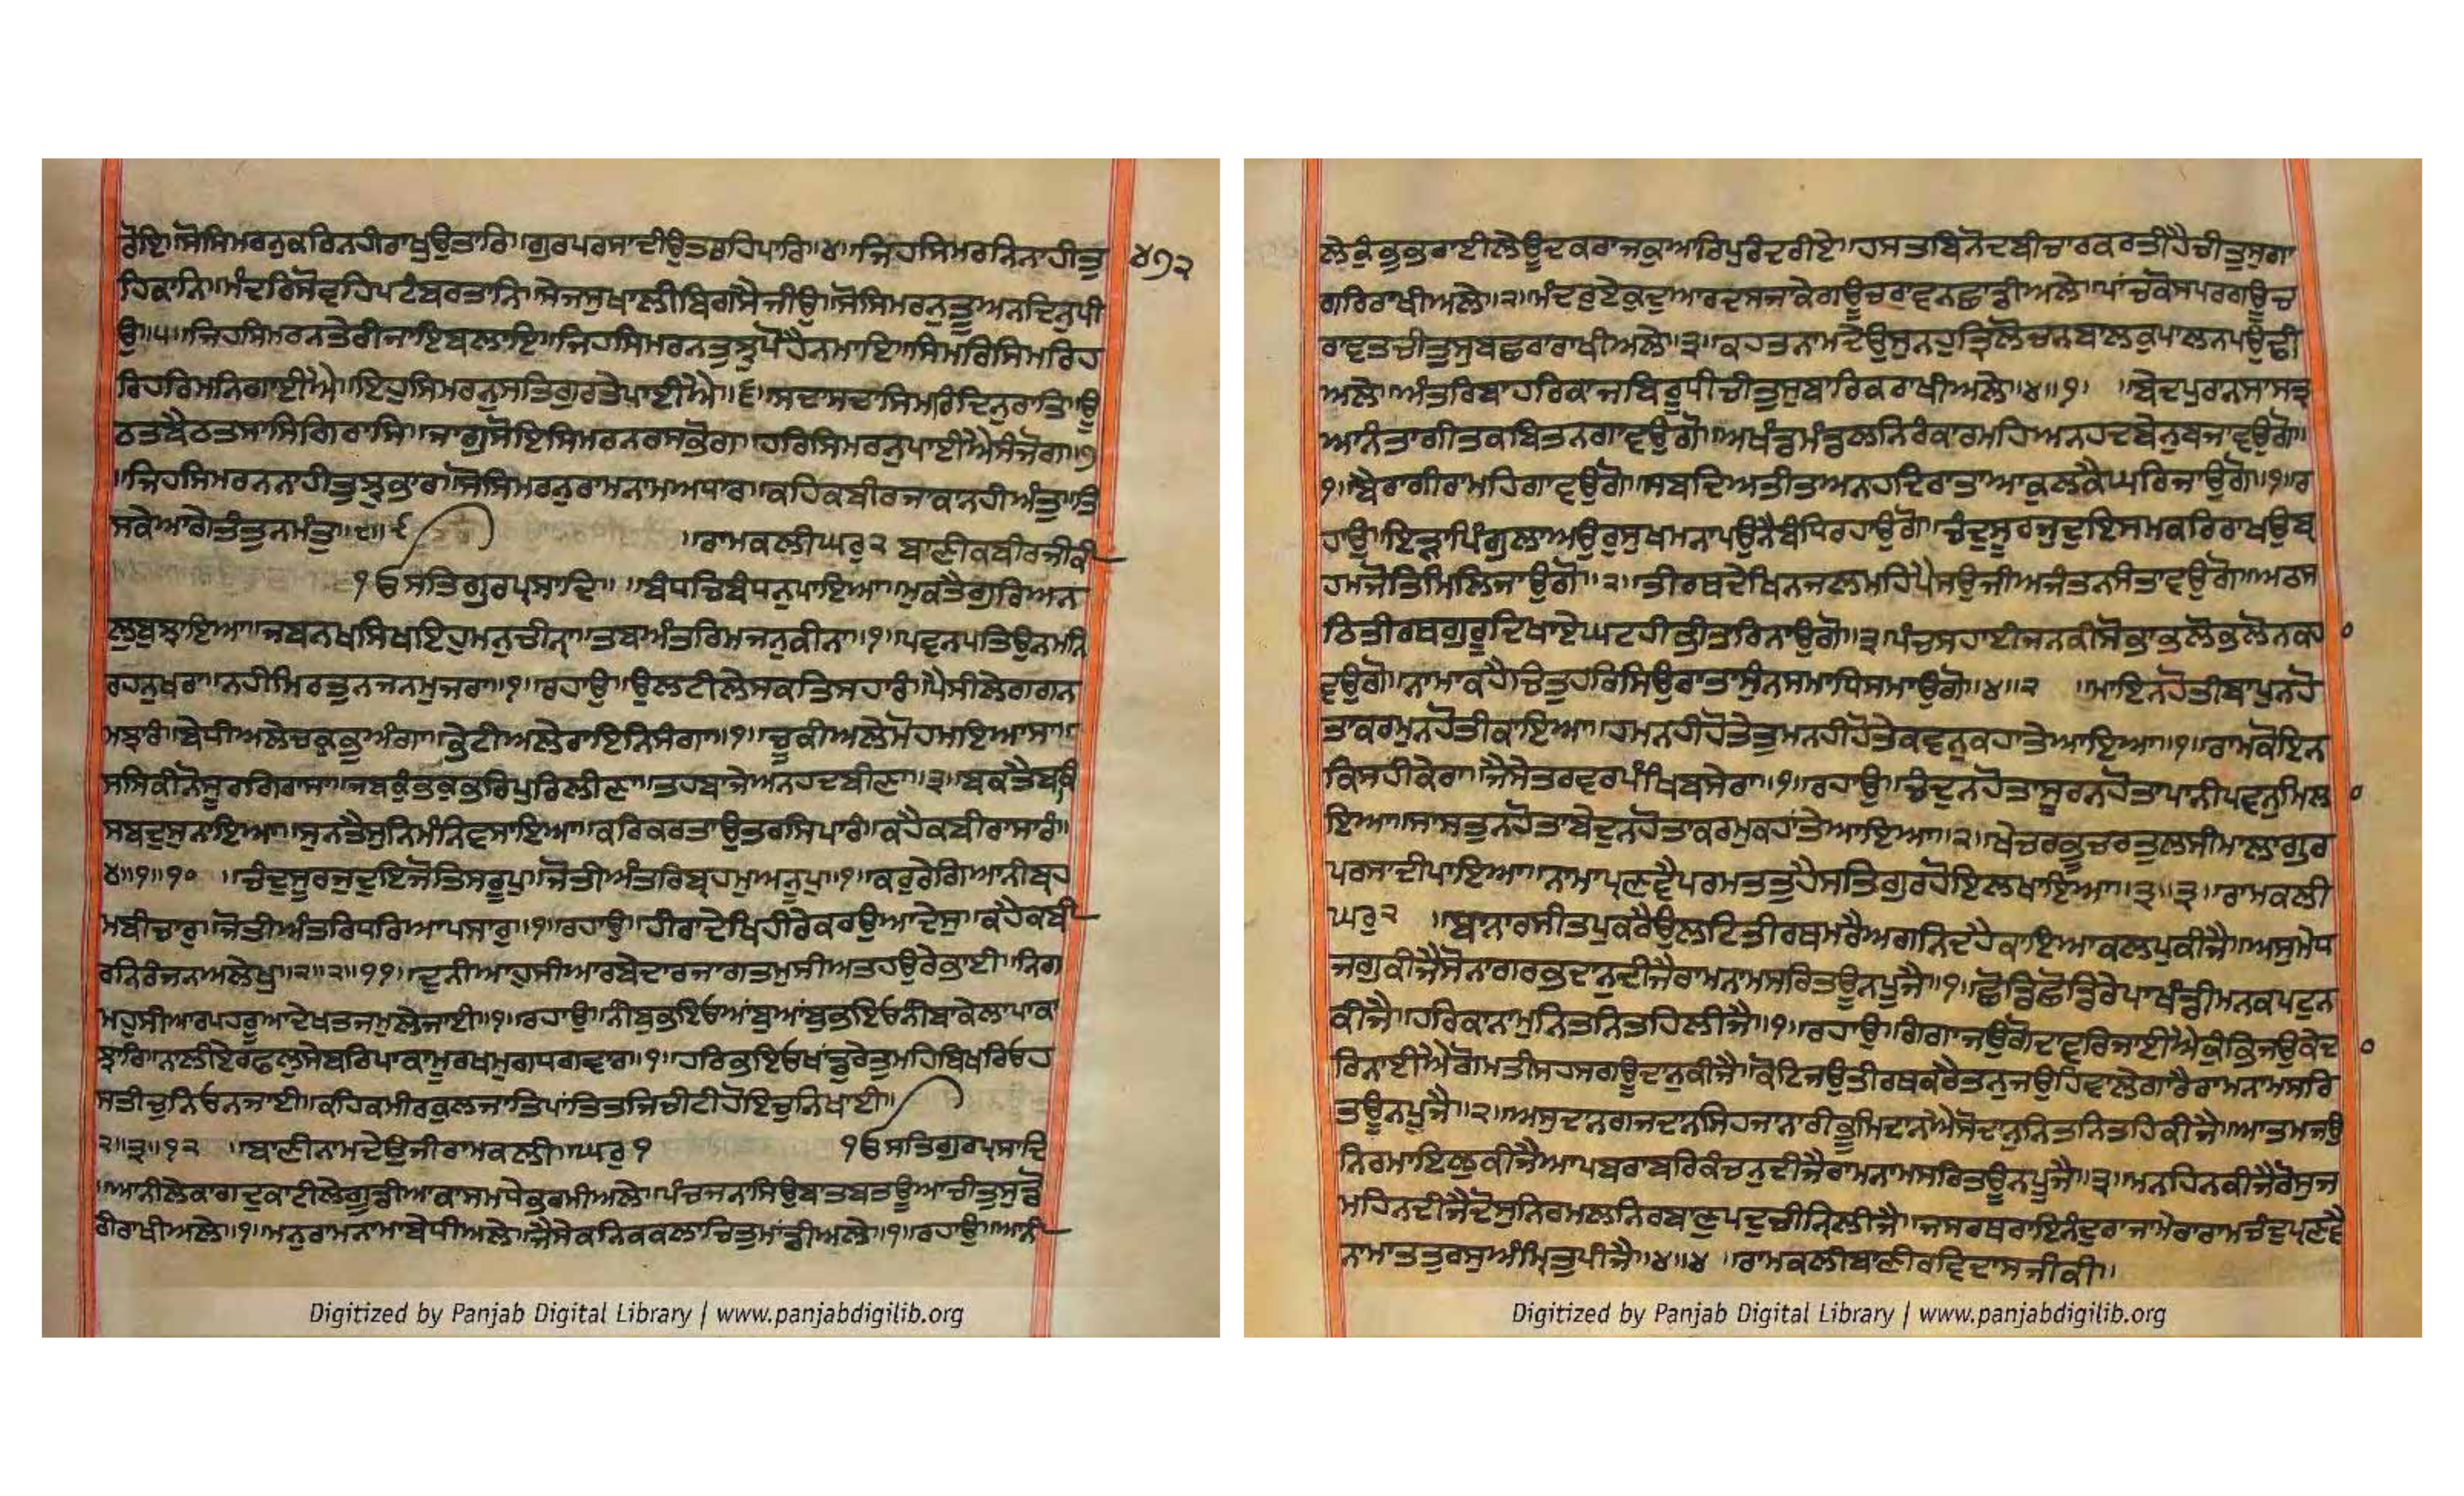 ਰੋਇ॥ਸੋਸਿਮਰਨੁਕਰਿਨਹੀਰਾਖੁਉਤਾਰਿ॥ਗੁਰਪਰਸਾਦੀਉਤਰਹਿਪਾਰਿ॥੪॥ਜਿਹਸਿਮਰਨਿਨਾਹੀਤੁ
੪੭੨
ਹਿਕਾਨਿ॥ਮੰਦਰਿਸੋਵਹਿਪਟੰਬਰਤਾਨਿ॥ਸੇਜਸੁਖਾਲੀਬਿਗਸੈਜੀਉ॥ਸੋਸਿਮਰਨੁਤੂਅਨਦਿਨੁਪੀ
ਉ॥੫॥ਜਿਹਸਿਮਰਨਤੇਰੀਜਾਇਬਲਾਇ॥ਜਿਹਸਿਮਰਨਤੁਝੁਪੋਹੈਨਮਾਇ॥ਸਿਮਰਿਸਿਮਰਿਹ
ਰਿਹਰਿਮਨਿਗਾਈਐ॥ਇਹੁਸਿਮਰਨੁਸਤਿਗੁਰਤੇਪਾਈਐ॥੬॥ਸਦਾਸਦਾਸਿਮਰਿਦਿਨੁਰਾਤਿ॥ਊ
ਠਤਬੈਠਤਸਾਸਿਗਿਰਾਸਿ॥ਜਾਗੁਸੋਇਸਿਮਰਨਰਸਭੋਗ॥ਹਰਿਸਿਮਰਨੁਪਾਈਐਸੰਜੋਗ॥੭
॥ਜਿਹਸਿਮਰਨਨਾਹੀਤੁਝੁਭਾਰ॥ਸੋਸਿਮਰਨੁਰਾਮਨਾਮਅਧਾਰ॥ਕਹਿਕਬੀਰਜਾਕਾਨਹੀਅੰਤੁ॥ਤਿ
ਸਕੇਆਗੇਤੰਤੁਨਮੰਤੁ॥੮॥੯ ॥ਰਾਮਕਲੀਘਰੁ੨ ਬਾਣੀਕਬੀਰਜੀਕੀ
੧ੳਸਤਿਗੁਰਪ੍ਰਸਾਦਿ॥ ॥ਬੰਧਚਿਬੰਧਨੁਪਾਇਆ॥ਮੁਕਤੈਗੁਰਿਅਨ
ਲੁਬੁਝਾਇਆ॥ਜਬਨਖਸਿਖਇਹੁਮਨੁਚੀਨ੍ਾ॥ਤਬਅੰਤਰਿਮਜਨੁਕੀਨਾ॥੧॥ਪਵਨਪਤਿਉਨਮਨਿ
ਰਹਨੁਖਰਾ॥ਨਹੀਮਿਰਤੁਨਜਨਮੁਜਰਾ॥੧॥ਰਹਾਉ॥ਉਲਟੀਲੇਸਕਤਿਸਹਾਰੰ॥ਪੈਸੀਲੇਗਗਨ
ਮਝਾਰੰ॥ਬੇਧੀਅਲੇਚਕ੍ਰਭੁਅੰਗਾ॥ਭੇਟੀਅਲੇਰਾਇਨਿਸੰਗਾ॥੨॥ਚੂਕੀਅਲੇਮੋਹਮਇਆਸਾ॥
ਸਸਿਕੀਨੋਸੂਰਗਿਰਾਸਾ॥ਜਬਕੁੰਭਕੁਭਰਿਪੁਰਿਲੀਣਾ॥ਤਹਬਾਜੇਅਨਹਦਬੀਣਾ॥੩॥ਬਕਤੈਬਕਿ
ਸਬਦੁਸੁਨਾਇਆ॥ਸੁਨਤੈਸੁਨਿਮੰਨਿਵਸਾਇਆ॥ਕਰਿਕਰਤਾਉਤਰਸਿਪਾਰੰ॥ਕਹੈਕਬੀਰਾਸਾਰੰ॥
੪॥੧॥੧੦ ॥ਚੰਦੁਸੂਰਜੁਦੁਇਜੋਤਿਸਰੂਪੁ॥ਜੋਤੀਅੰਤਰਿਬ੍ਰਹਮੁਅਨੂਪੁ॥੧॥ਕਰੁਰੇਗਿਆਨੀਬ੍ਰਹ
ਮਬੀਚਾਰੁ॥ਜੋਤੀਅੰਤਰਿਧਰਿਆਪਸਾਰੁ॥੧॥ਰਹਾਉ॥ਹੀਰਾਦੇਖਿਹੀਰੇਕਰਉਆਦੇਸੁ॥ਕਹੈਕਬੀ
ਰਨਿਰੰਜਨਅਲੇਖੁ॥੨॥੨॥੧੧॥ਦੁਨੀਆਹੁਸੀਆਰਬੇਦਾਰਜਾਗਤਮੁਸੀਅਤਹਉਰੇਭਾਈ॥ਨਿਗ
ਮਹੁਸੀਆਰਪਹਰੂਆਦੇਖਤਜਮੁਲੇਜਾਈ॥੧॥ਰਹਾਉ॥ਨੀਬੁਭਇਓਆਂਬੁਆਂਬੁਭਇਓਨੀਬਾਕੇਲਾਪਾਕਾ
ਝਾਰਿ॥ਨਾਲੀਏਰਫਲੁਸੇਬਰਿਪਾਕਾਮੂਰਖਮੁਗਧਗਵਾਰ॥੧॥ਹਰਿਭਇਓਖਾਂਡੁਰੇਤੁਮਹਿਬਿਖਰਿਓਹ
ਸਤੀਚੁਨਿਓਨਜਾਈ॥ਕਹਿਕਮੀਰਕੁਲਜਾਤਿਪਾਂਤਿਤਜਿਚੀਟੀਹੋਇਚੁਨਿਖਾਈ॥
੨॥੩॥੧੨ ॥ਬਾਣੀਨਾਮਦੇਉਜੀਰਾਮਕਲੀ॥ਘਰੁ੧ ੧ੳਸਤਿਗੁਰਪ੍ਰਸਾਦਿ
॥ਆਨੀਲੇਕਾਗਦੁਕਾਟੀਲੇਗੂਡੀਆਕਾਸਮਧੇਭਰਮੀਅਲੇ॥ਪੰਚਜਨਸਿਉਬਾਤਬਤਊਆਚੀਤੁਸੁਡੋ
ਰੀਰਾਖੀਅਲੇ॥੧॥ਮਨੁਰਾਮਨਾਮਾਬੇਧੀਅਲੇ॥ਜੈਸੇਕਨਿਕਕਲਾਚਿਤੁਮਾਂਡੀਅਲੇ॥੧॥ਰਹਾਉ॥ਆਨੀ
Digitized by Panjab Digital Library | www.panjabdigilib.org
ਲੇਕੁੰਭੁਭਰਾਈਲੇਊਦਕਰਾਜਕੁਆਰਿਪੁਰਿੰਦਰੀਏ॥ਹਸਤਬਿਨੋਦਬੀਚਾਰਕਰਤੀਹੈਚੀਤੁਸੁਗਾ
ਗਰਿਰਾਖੀਅਲੇ॥੨॥ਮੰਦਰੁਏਕੁਦੁਆਰਦਸਜਾਕੇਗਊਚਰਾਵਨਛਾਡੀਅਲੇ॥ਪਾਂਚਕੋਸਪਰਗਊਚ
ਰਾਵਤਚੀਤੁਸੁਬਛਰਾਰਾਖੀਅਲੇ॥੩॥ਕਹਤਨਾਮਦੇਉਸੁਨਹੁਤ੍ਰਿਲੋਚਨਬਾਲਕੁਪਾਲਨਪਉਢੀ
ਅਲੇ॥ਅੰਤਰਿਬਾਹਰਿਕਾਜਬਿਰੂਧੀਚੀਤੁਸੁਬਾਰਿਕਰਾਖੀਅਲੇ॥੪॥੧॥ ॥ਬੇਦਪੁਰਨਸਾਸਤ੍ਰ
ਆਨੰਤਾਗੀਤਕਬਿਤਨਗਾਵਉਗੋ॥ਅਖੰਡਮੰਡਲਨਿਰੰਕਾਰਮਹਿਅਨਹਦਬੇਨੁਬਜਾਵਉਗੋ॥
੧॥ਬੈਰਾਗੀਰਾਮਹਿਗਾਵਉਗੋ॥ਸਬਦਿਅਤੀਤਅਨਹਦਿਰਾਤਾਆਕੁਲਕੈਘਰਿਜਾਉਗੋ॥੧॥ਰ
ਹਾਉ॥ਇੜਾਪਿੰਗੁਲਾਅਉਰੁਸੁਖਮਨਾਪਉਨੈਬੰਧਿਰਹਾਉਗੋ॥ਚੰਦੁਸੂਰਜੁਦੁਇਸਮਕਰਿਰਾਖਉਬ੍ਰ
ਹਮਜੋਤਿਮਿਲਿਜਾਉਗੋ॥੨॥ਤੀਰਥਦੇਖਿਨਜਲਮਹਿਪੈਸਉਜੀਅਜੰਤਨਸੰਤਾਵਉਗੋ॥ਅਠਸ
ਠਿਤੀਰਥਗੁਰੂਦਿਖਾਏਘਟਹੀਭੀਤਰਿਨਾਉਗੋ॥੩॥ਪੰਚਸਹਾਈਜਨਕੀਸੋਭਾਭਲੋਭਲੋਨਕਹਾ
ਵਉਗੋ॥ਨਾਮਾਕਹੈਚਿਤੁਹਰਿਸਿਉਰਾਤਾਸੁੰਨਸਮਾਧਿਸਮਾਉਗੋ॥੪॥੨ ॥ਮਾਇਨਹੋਤੀਬਾਪੁਨਹੋ
ਤਾਕਰਮੁਨਹੋਤੀਕਾਇਆ॥ਹਮਨਹੀਹੋਤੇਤੁਮਨਹੀਹੋਤੇਕਵਨੁਕਹਾਤੇਆਇਆ॥੧॥ਰਾਮਕੋਇਨ
ਕਿਸਹੀਕੇਰਾ॥ਜੈਸੇਤਰਵਰਪੰਖਿਬਸੇਰਾ॥੧॥ਰਹਾਉ॥ਚੰਦੁਨਹੋਤਾਸੂਰਨਹੋਤਾਪਾਨੀਪਵਨੁਮਿਲਾ
ਇਆ॥ਸਾਸਤੁਨਹੋਤਾਬੇਦੁਨਹੋਤਾਕਰਮੁਕਹਾਂਤੇਆਇਆ॥੨॥ਖੇਚਰਭੂਚਰਤੁਲਸੀਮਾਲਾਗੁਰ
ਪਰਸਾਦੀਪਾਇਆ॥ਨਾਮਾਪ੍ਰਣਵੈਪਰਮਤਤੁਹੈਸਤਿਗੁਰਹੋਇਲਖਾਇਆ॥੩॥੩॥ਰਾਮਕਲੀ
ਘਰੁ੨ ॥ਬਾਨਾਰਸੀਤਪੁਕਰੈਉਲਟਿਤੀਰਥਮਰੈਅਗਨਿਦਹੈਕਾਇਆਕਲਪੁਕੀਜੈ॥ਅਸੁਮੇਧ
ਜਗੁਕੀਜੈਸੋਨਾਗਰਭਦਾਨੁਦੀਜੈਰਾਮਨਾਮਸਰਿਤਊਨਪੂਜੈ॥੧॥ਛੋਡਿਛੋਡਿਰੇਪਾਖੰਡੀਮਨਕਪਟੁਨ
ਕੀਜੈ॥ਹਰਿਕਾਨਾਮੁਨਿਤਨਿਤਹਿਲੀਜੈ॥੧॥ਰਹਾਉ॥ਗੰਗਾਜਉਗੋਦਾਵਰਿਜਾਈਐਕੁੰਭਿਜਉਕੇਦਾ
ਰਿਨਾਈਐਗੋਮਤੀਸਹਸਗਊਦਾਨੁਕੀਜੈ॥ਕੋਟਿਜਉਤੀਰਥਕਰੈਤਨੁਜਉਹਿਵਾਲੇਗਾਰੈਰਾਮਨਾਮਸਰਿ
ਤਊਨਪੂਜੈ॥੨॥ਅਸੁਦਾਨਗਜਦਾਨਸਿਹਜਾਨਾਰੀਭੂਮਿਦਾਨਐਸੋਦਾਨੁਨਿਤਨਿਤਹਿਕੀਜੈ॥ਆਤਮਜਉ
ਨਿਰਮਾਇਲੁਕੀਜੈਆਪਬਰਾਬਰਿਕੰਚਨੁਦੀਜੈਰਾਮਨਾਮਸਰਿਤਊਨਪੂਜੈ॥੩॥ਮਨਹਿਨਕੀਜੈਰੋਸੁਜ
ਮਹਿਨਦੀਜੈਦੋਸੁਨਿਰਮਲਨਿਰਬਾਣੁਪਦੁਚੀਨ੍ਿਲੀਜੈ॥ਜਸਰਥਰਾਇਨੰਦੁਰਾਜਾਮੇਰਾਰਾਮਚੰਦੁਪ੍ਰਣਵੈ
ਨਾਮਾਤਤੁਰਸੁਅੰਮ੍ਰਿਤੁਪੀਜੈ॥੪॥੪ ॥ਰਾਮਕਲੀਬਾਣੀਰਵਿਦਾਸਜੀਕੀ॥
Digitized by Panjab Digital Library | www.panjabdigilib.org